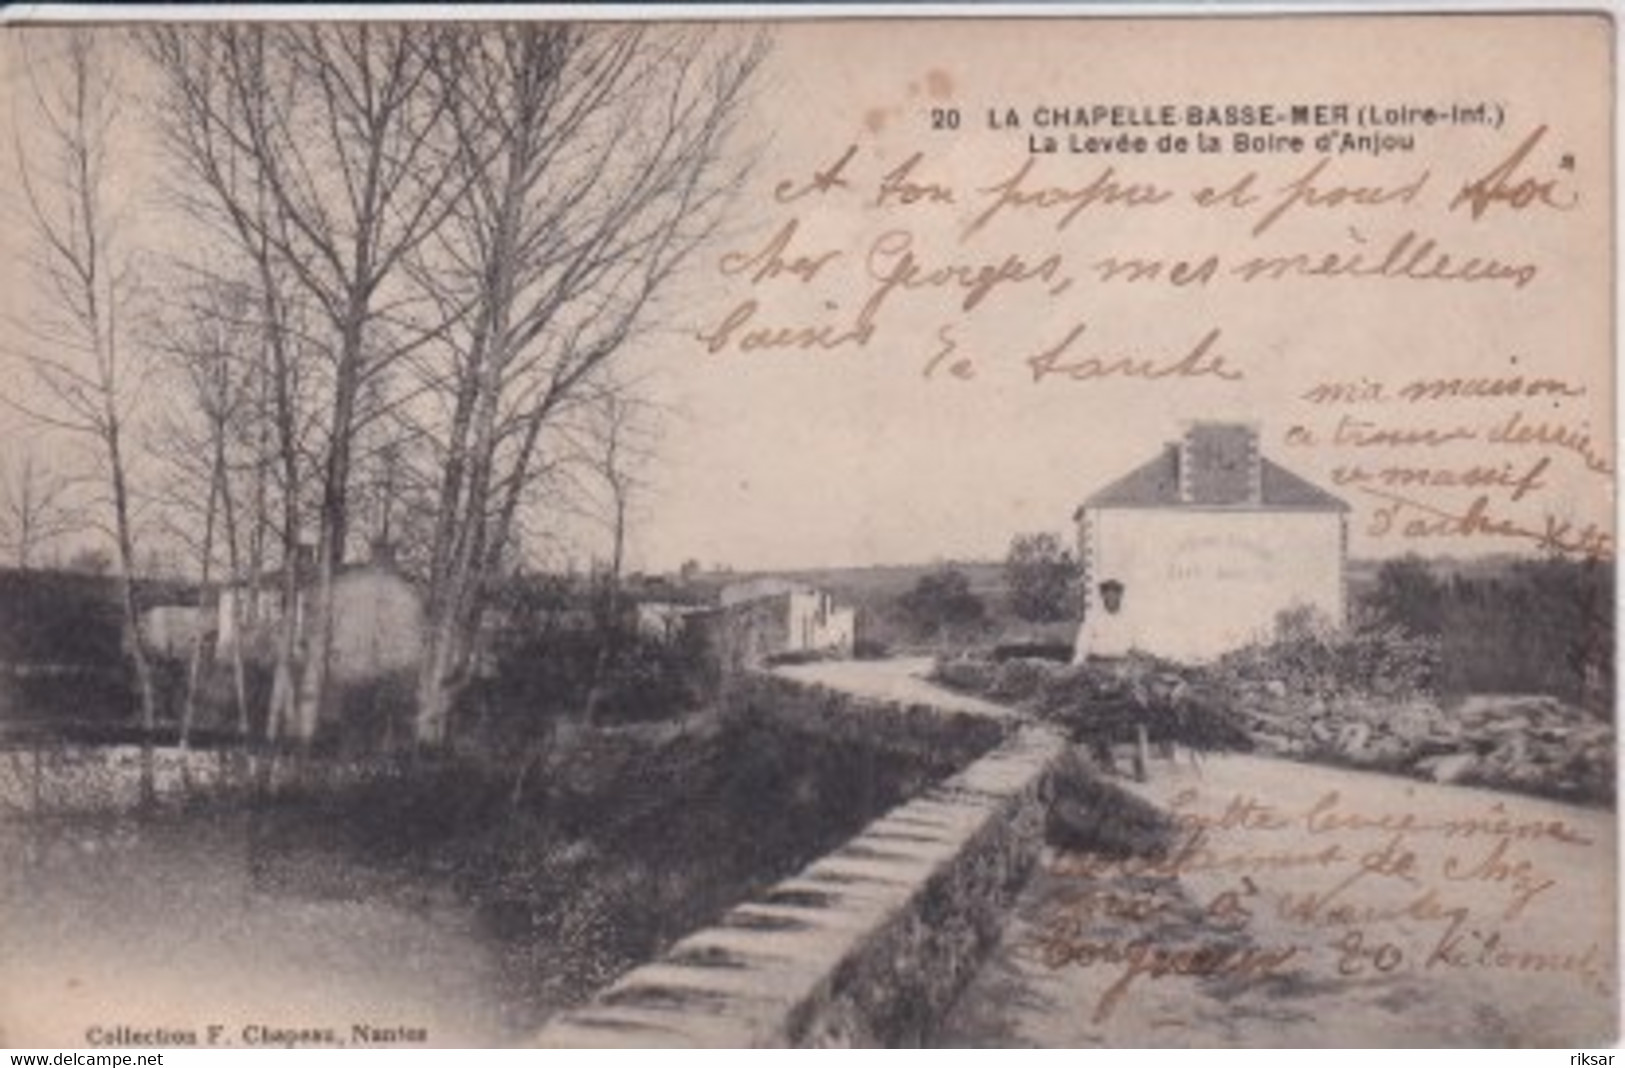 20 LA CHAPELLE-BASSE-MER (Loire-Inf.)
La Levée de la Boire d'Anjou
A ton papa et pour toi
cher Georges, mes meilleurs
baisers Ta tante
ma maison
se trouve derrière
ce massif
d'arbre
Cette levée mène
directement de chez
moi à Nantes
Longueur 20 kilomet.
Collection F. Chapeau, Nantes
www.delcampe.net
riksar